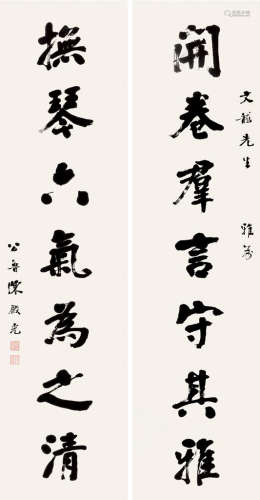 文龍先生 雅属
開卷羣言守其雅
撫琴六氣為之清
公魯陳殿尧